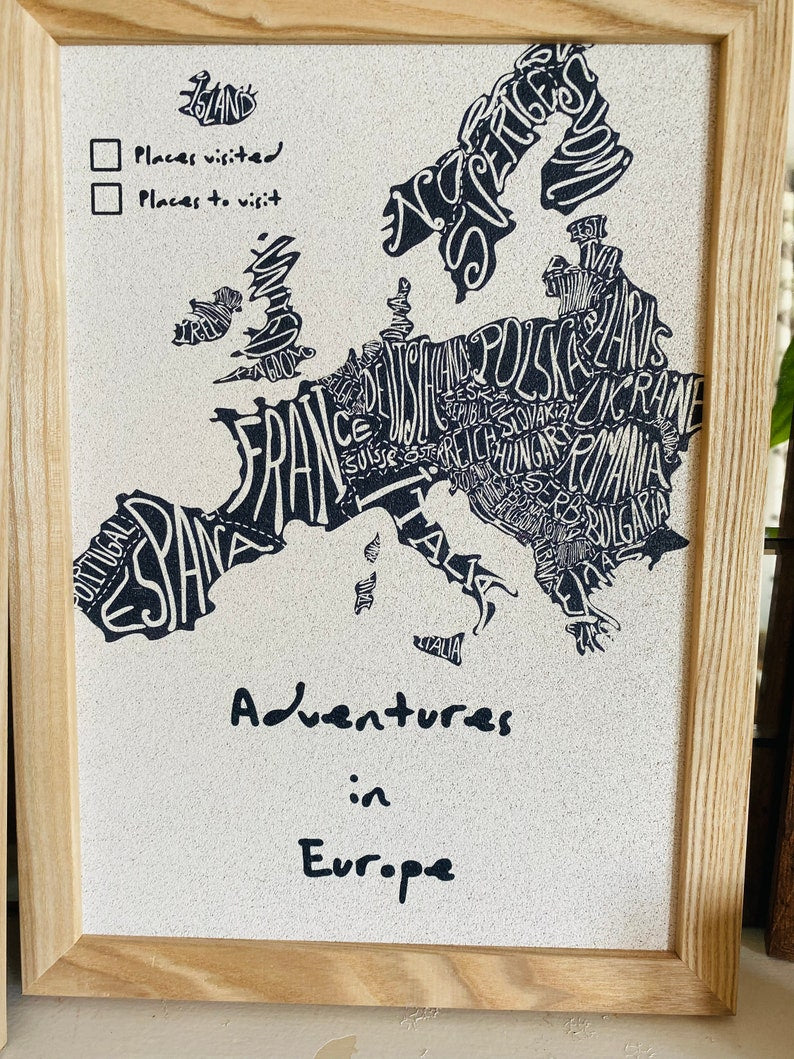 ISLAND
Places visited
Places to visit
SVERIGE
SUOMI
EESTI
IRELAND
UNITED
KINGDOM
DEUTSCHLAND
POLSKA
BELARUS
UKRAINE
FRANCE
SUISSE
ČESKÁ
REPUBLIC
SLOVAKIA
HUNGARY
ROMANIA
SERB
BULGARIA
PORTUGAL
ESPAÑA
ITALIA
ITALIA
Adventures
in
Europe